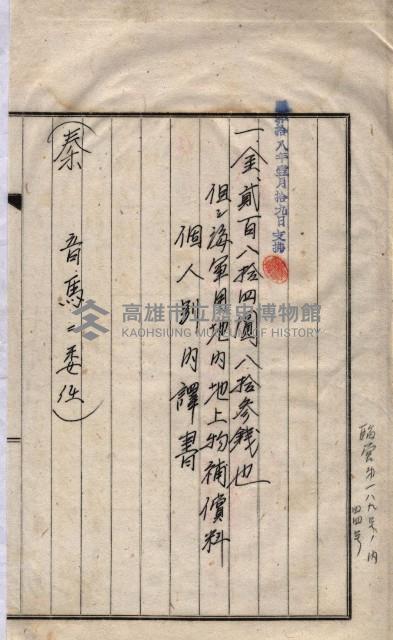 昭和拾八年壹月拾九日支拂
一、金貳百八拾四圓八拾參錢也
但シ海軍用地內地上物補償料
個人別內譯書
(秦 音馬ニ委任)
高雄市立歷史博物館
KAOHSIUNG MUSEUM OF HISTORY